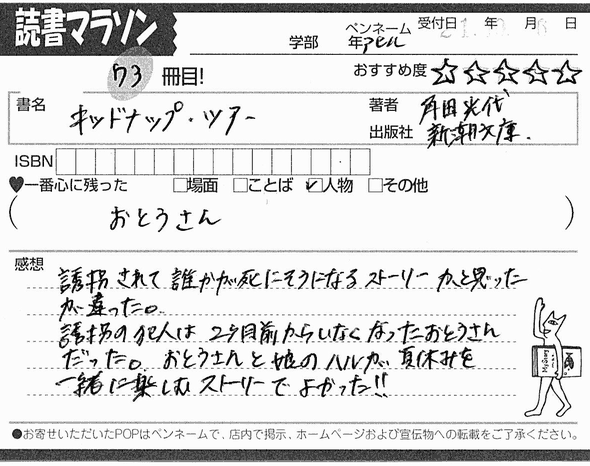 読書マラソン
学部 年
ペンネーム アヒル
受付日 年 月 日
73 冊目!
おすすめ度 ☆☆☆☆☆
書名 キッドナップ・ツアー
著者 角田光代
出版社 新潮文庫.
ISBN
♥一番心に残った □場面 □ことば ☑人物 □その他
( おとうさん )
感想
誘拐されて誰かが死にそうになるストーリーかと思った
が違った。
誘拐の犯人は2ヶ月前からいなくなったおとうさん
だった。おとうさんと娘のハルが夏休みを
一緒に楽しむストーリーでよかった!!
●お寄せいただいたPOPはペンネームで、店内で掲示、ホームページおよび宣伝物への転載をご了承ください。